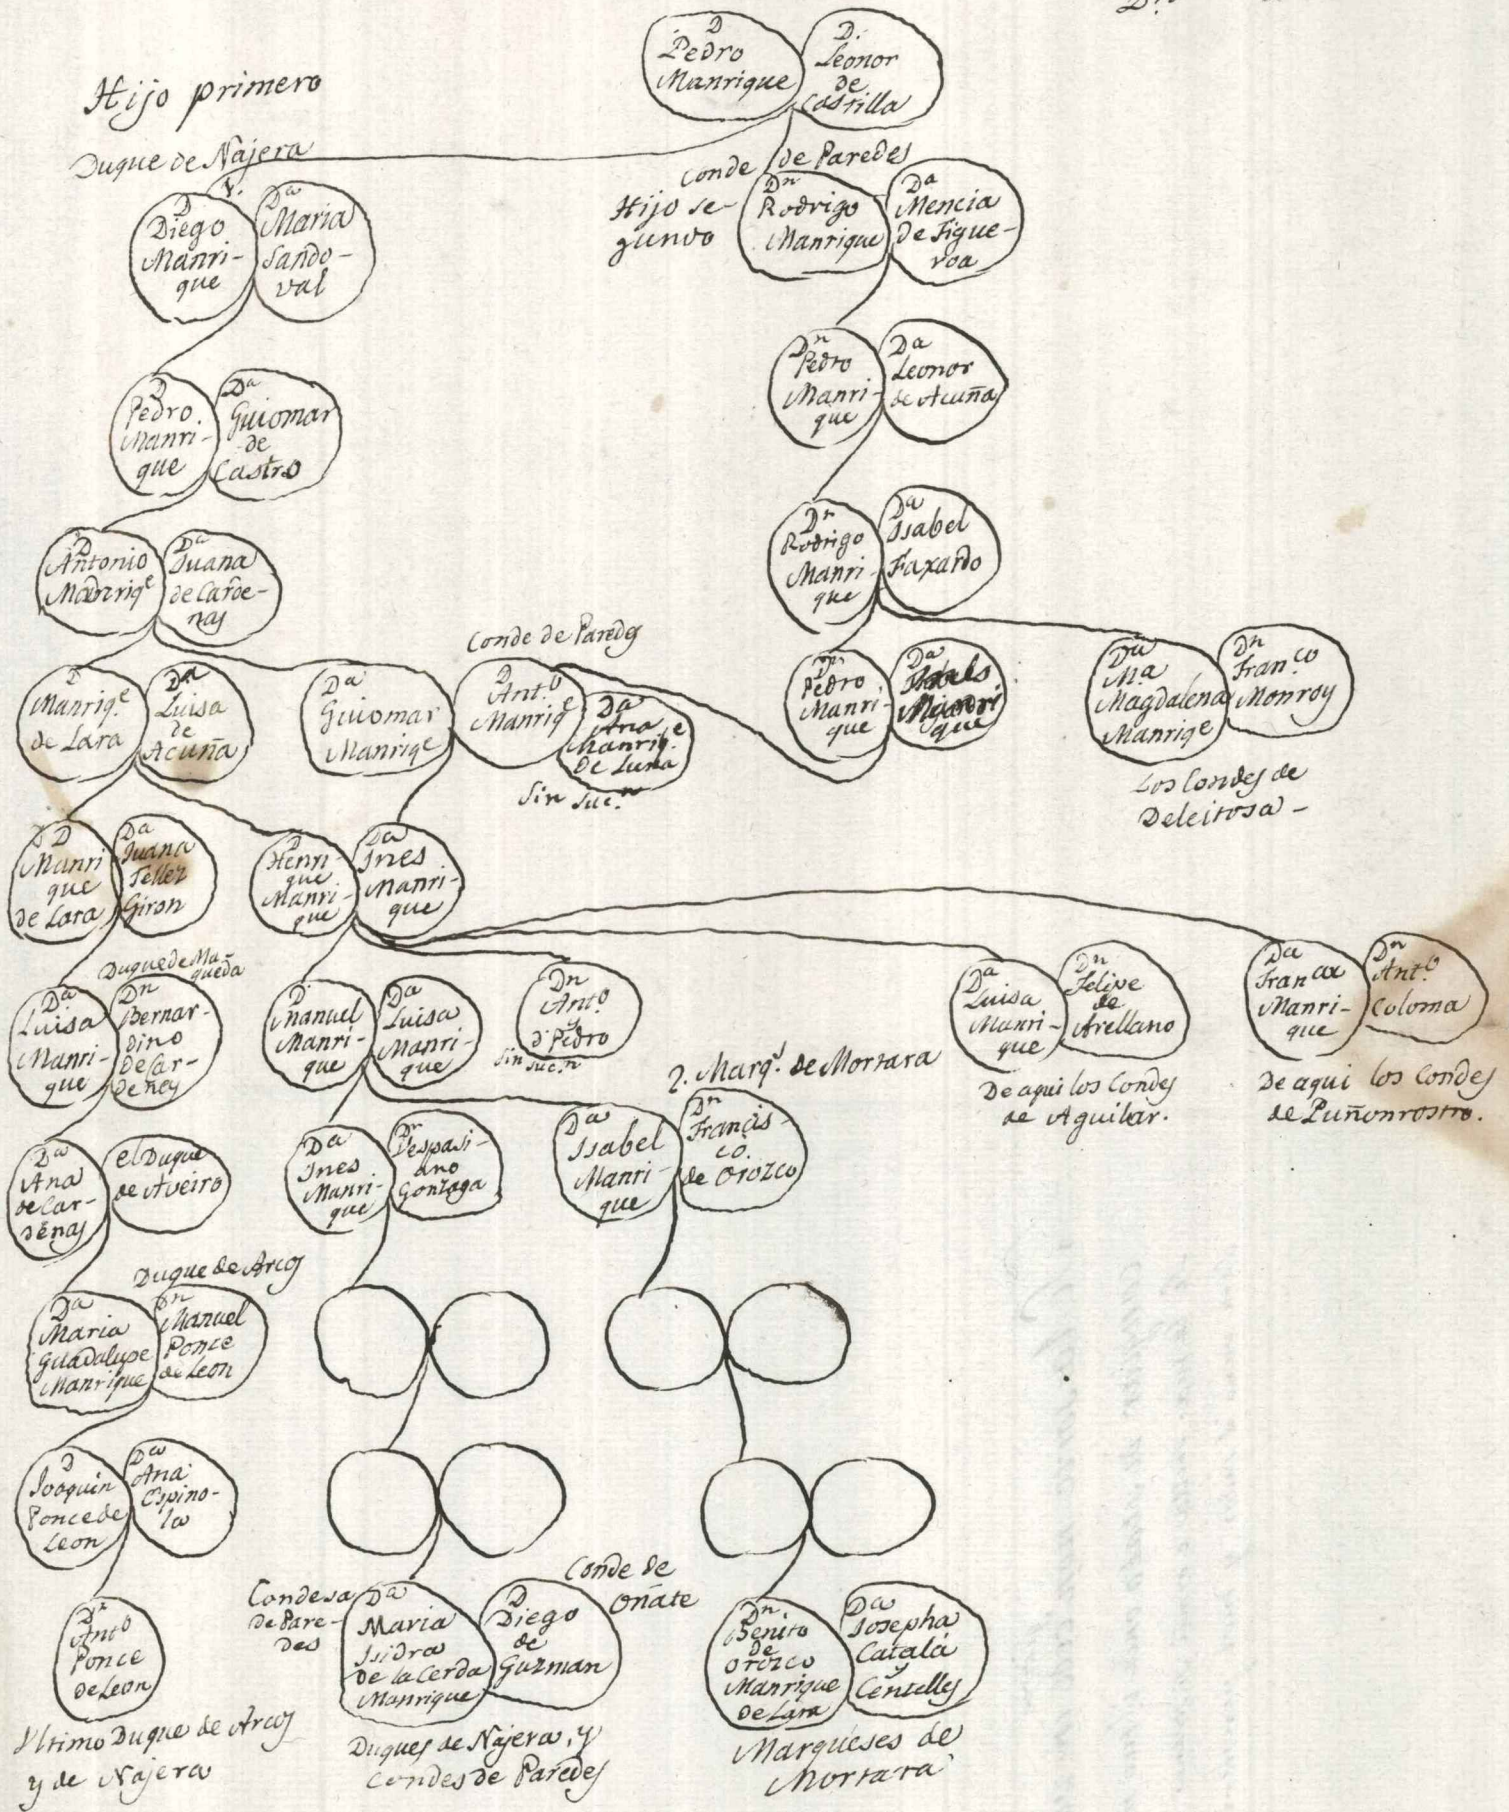 Dn
D
Pedro
Manrique
D.
Leonor
de
Castilla
Hijo primero
Duque de Nájera
D
Diego
Manri-
que
Da
Maria
Sando-
val
Conde de Paredes
Hijo se-
gundo
Dn
Rodrigo
Manrique
Da
Mencia
de Figue-
roa
Dn
Pedro
Manri-
que
Da
Leonor
de Acuña
D
Pedro
Manri-
que
Da
Guiomar
de
Castro
Dn
Rodrigo
Manri-
que
Da
Isabel
Faxardo
D
Antonio
Manriqe
Da
Juana
de Carde-
nas
Conde de Paredes
D
Manriqe
de Lara
Da
Luisa
de
Acuña
Da
Guiomar
Manriqe
D
Anto
Manriqe
Da
Ana
Manriqe
de Luna
Sin Sucn
Dn
Pedro
Manri-
que
Da
Manri
que
Da
Ma
Magdalena
Manriqe
Dn
Franco
Monroy
Los Condes de
Deleitosa -
D
Manri
que
de Lara
Da
Juana
Tellez
Giron
D
Henri-
que
Manri-
que
Da
Ines
Manri-
que
Duque de Ma-
queda
Da
Luisa
Manri-
que
Dn
Bernar-
dino
de Car-
denas
D
Manuel
Manri-
que
Da
Luisa
Manri-
que
Dn
Anto
y
D Pedro
Sin sucn
Da
Luisa
Manri-
que
Dn
Felipe
de
Arellano
De aqui los Condes
de Aguilar.
Da
Franca
Manri-
que
Dn
Anto
Coloma
De aqui los Condes
de Puñonrostro.
2. Marqs de Mortara
Da
Ana
de Car-
denas
el Duque
de Aveiro
Da
Ines
Manri-
que
Dn
Vespasi-
ano
Gonzaga
Da
Isabel
Manri-
que
Dn
Francis-
co
de Orozco
Duque de Arcos
Da
Maria
Guadalupe
Manrique
Dn
Manuel
Ponce
de Leon
D
Joaquin
Ponce de
Leon
Da
Ana
Espino-
la
Dn
Anto
Ponce
de Leon
Ultimo Duque de Arcos
y de Nájera
Condesa
de Pare-
des
Da
Maria
Isidra
de la Cerda
Manrique
D
Diego
de
Guzman
Conde de
Oñate
Duques de Nájera, y
Condes de Paredes
Dn
Benito
de
Orozco
Manrique
de Lara
Da
Josepha
Catalá
y
Centelles
Marqueses de
Mortara